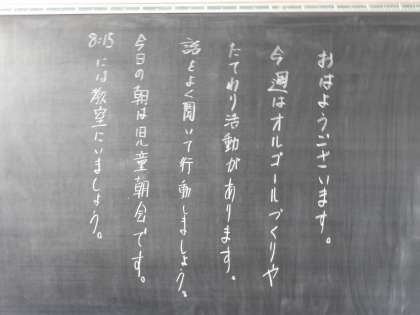 おはようございます。
今週はオルゴールづくりや
たてわり活動があります。
話をよく聞いて行動しましょう。
今日の朝は児童朝会です。
8:15には教室にいましょう。